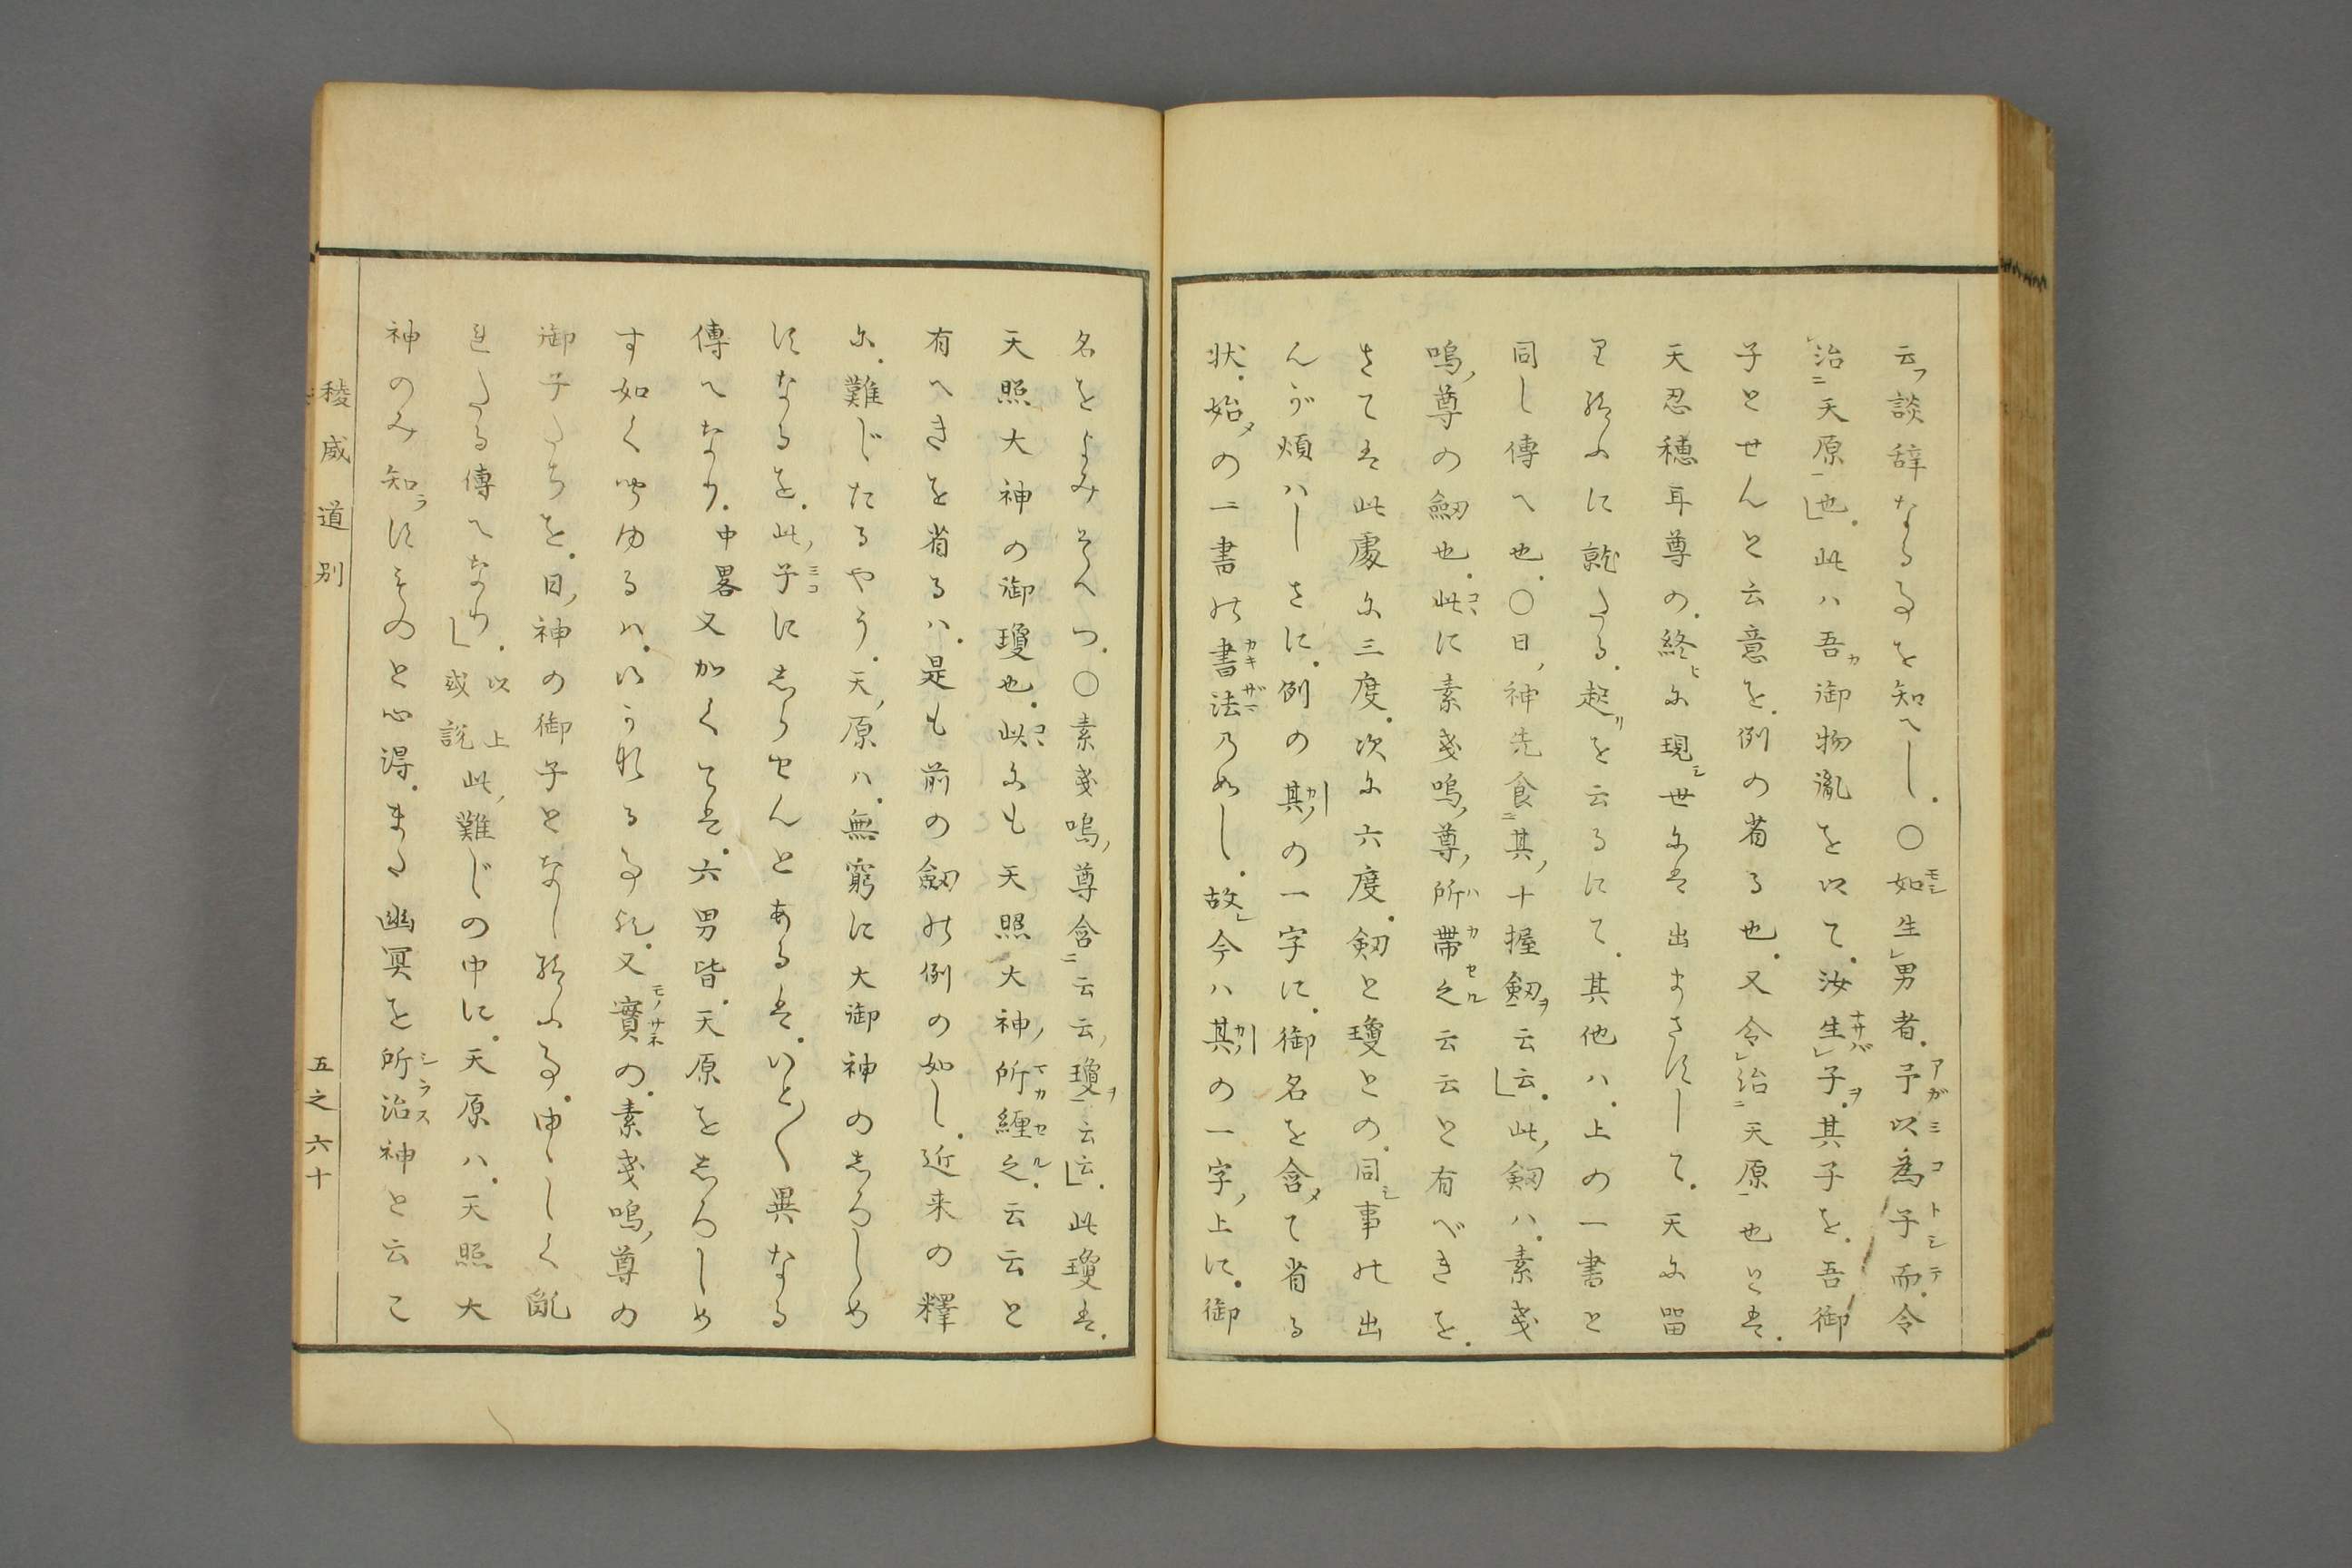 云フ談辞なる事を知へし。○如シ生レ男者。予以為子而。令
治ニ天原一也」。此ハ吾カ御物胤を以て。汝生レ子ヲ。其子を。吾御
子とせんと云意を。例の省る也。又令レ治ニ天原一也とは。
天忍穂耳尊の。終ヒに現シ世には出まさずして。天に留
り給ふに就たる。起リを云るにて。其他ハ。上の一書と
同し傳へ也。○日ノ神先食ニ其ノ十握劔一ヲ云云」。此ノ劔ハ。素戔
嗚ノ尊の劔也。此に素戔嗚ノ尊ノ所帶之云云と有べきを。
さては此處に三度。次に六度。劔と瓊との。同シ事の出
んが煩ハしさに。例の其ノの一字に。御名を含メて省る
状。始メの二書の書法のめし。故レ今ハ其ノの一字ノ上に。御
名をよみそへつ。○素戔嗚ノ尊含ニ云云ノ瓊一ヲ云云」。此瓊は。
天照大神の御瓊也。此にも天照大神ノ所纏之。云云と
有へきを省るハ。是も前の劔の例の如し。近来の釋
に。難じたるやう。天ノ原ハ。無窮に大御神のしろしめ
すなるを。此ノ子にしらせんとあるは。いと〳〵異なる
傳へなり。中畧又かくては。六男皆。天原をしろしめ
す如く聞ゆるハ。いかなる事ぞ。又實の。素戔嗚ノ尊の
御子たちを。日ノ神の御子となし給ふ事。甚しく亂
れたる傳へなり。」以上或説此ノ難じの中に。天原ハ。天照大
神のみ知ラすものと心得。また幽冥を所治神と云こ
稜威道別
五之六十